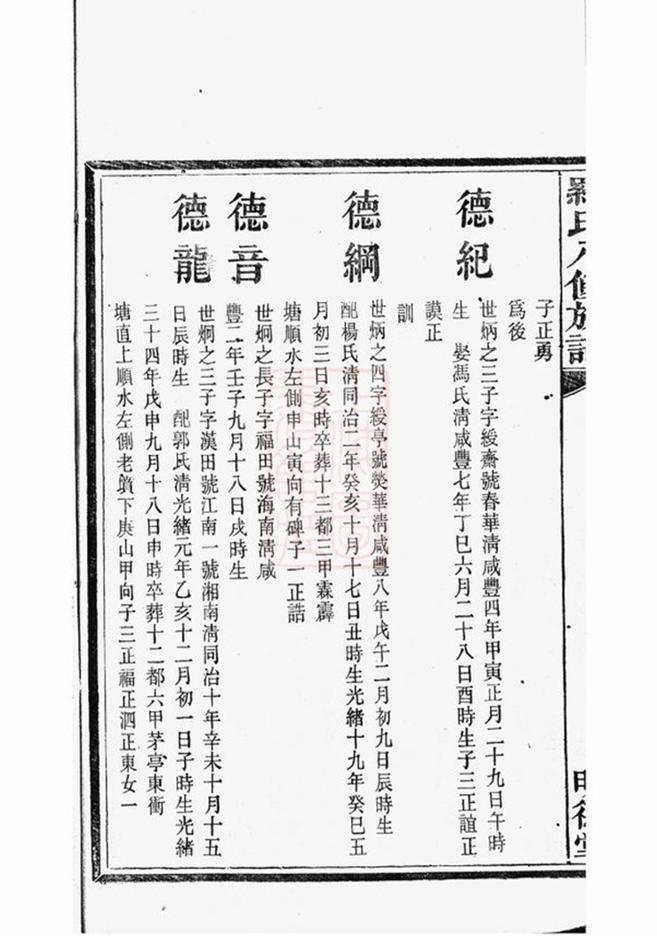 羅氏八修族譜
明德堂
子正勇
為後
德紀
世炳之三子字綬齋號春華清咸豐四年甲寅正月二十九日午時
生　娶馮氏清咸豐七年丁巳六月二十八日酉時生子三正誼正
謨正
訓
德綱
世炳之四字綬亭號熒華清咸豐八年戊午二月初九日辰時生
配楊氏清同治二年癸亥十月十七日丑時生光緒十九年癸巳五
月初三日亥時卒葬十三都三甲霖霹
塘順水左側申山寅向有碑子一正誥
德音
世炯之長子字福田號海南清咸
豐二年壬子九月十八日戌時生
德龍
世炯之三子字漢田號江南一號湘南清同治十年辛未十月十五
日辰時生　配郭氏清光緒元年乙亥十二月初一日子時生光緒
三十四年戊申九月十八日申時卒葬十二都六甲茅亭東衝
塘直上順水左側老墳下庚山甲向子三正福正泗正東女一